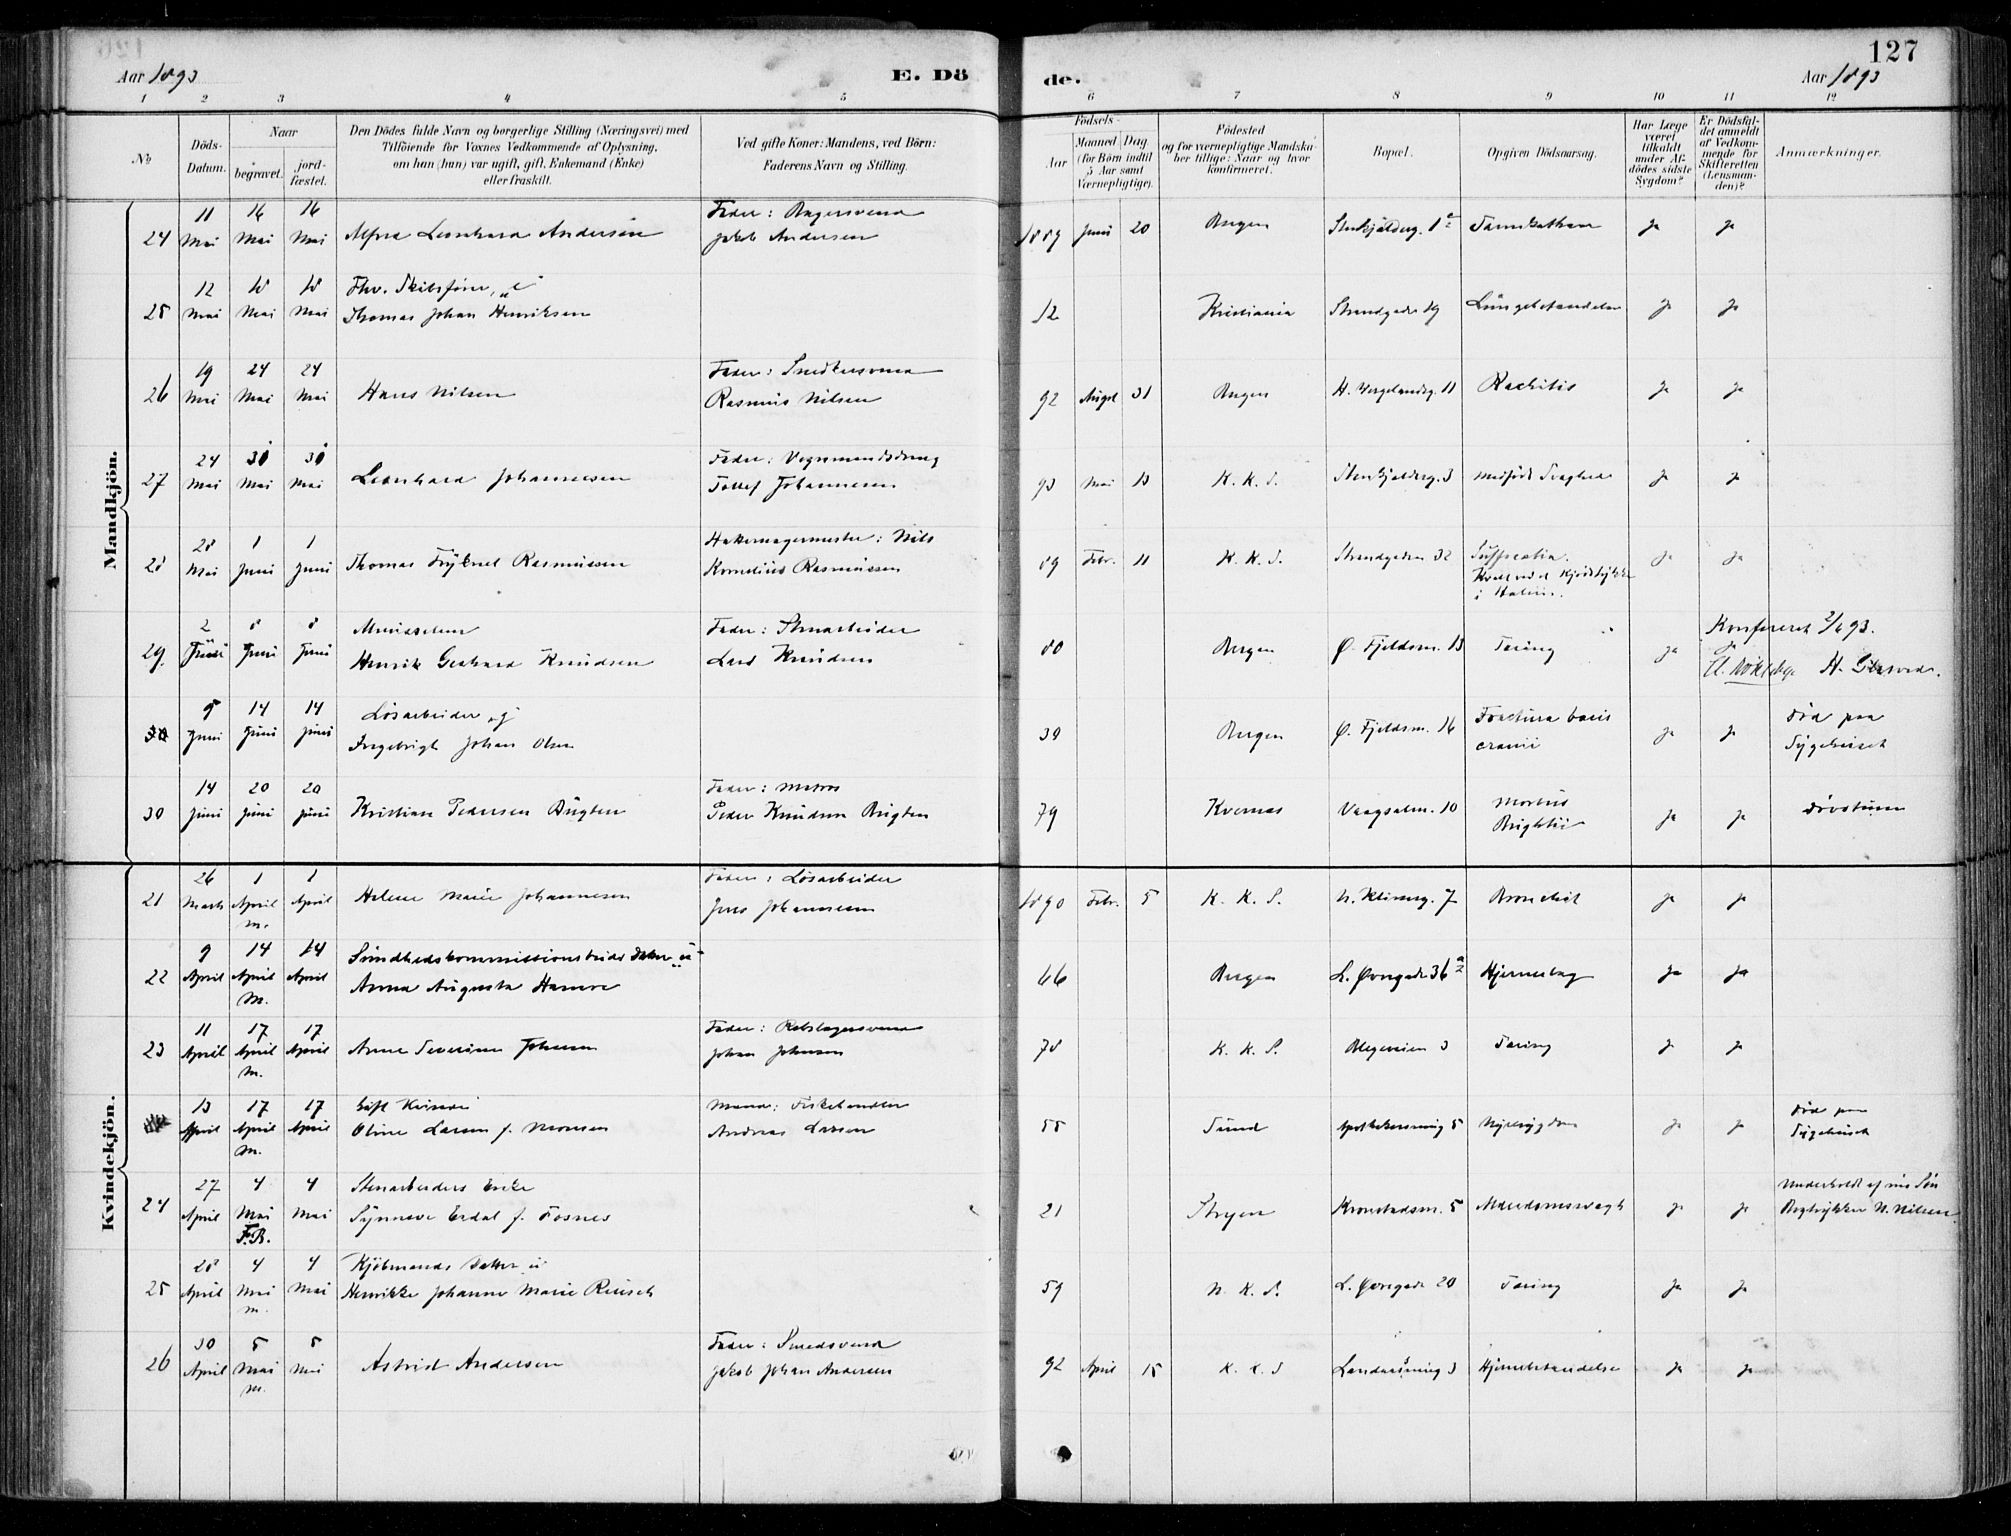 127
Aar 1893 E. Dö de. Aar 1893
1 2 3 4 5 6 7 8 9 10 11 12
No
Döds-Datum.
Naar begravet. jordfæstet.
Den Dödes fulde Navn og borgerlige Stilling (Næringsvei) med Tilföiende for Voxnes Vedkommende af Oplysning, om han (hun) var ugift, gift, Enkemand (Enke) eller fraskilt.
Ved gifte Koner: Mandens, ved Börn: Faderens Navn og Stilling.
Födsels- Aar Maaned Dag (for Börn indtil 5 Aar samt Værnepligtige).
Födested og for værnepligtige Mandskaber tillige: Naar og hvor konfirmeret.
Bopæl.
Opgiven Dödsaarsag.
Har Læge været tilkaldt under Afdödes sidste Sygdom?
Er Dödsfaldet anmeldt af Vedkommende for Skifteretten (Lensmanden)?
Anmærkninger.
Mandkjön.
24 11 Mai 16 Mai 16 Mai Alfred Leonhard Andersen Fader: Bagersvend Jakob Andersen 1889 Juni 20 Bergen Stenkjælderg. 1 a ja ja
25 12 Mai 18 Mai 18 Mai Fhv. Skibsfører, Thomas Johan Henriksen 12 Kristiania Strandgaden 19 Lungebetændelse ja ja
26 19 Mai 24 Mai 24 Mai Hans Nilsen Fader: Snedkersvend Rasmus Nilsen 92 August 31 Bergen H. Vergelandsg. 11 Rachitis ja ja
27 24 Mai 30 Mai 30 Mai Leonhard Johannesen Fader: Vognmandsdreng Tollef Johannesen 93 Mai 13 K. K. S. Stenkjælderg. 3 medfødt Svaghed ja ja
28 28 Mai 1 Juni 1 Juni Thomas Rasmussen Nils Kornelius Rasmussen 89 Febr. 11 K. K. S. Strandgaden 32 Suffocatio. Kvalt ved et Kjødstykke i Halsen. ja ja
29. 2 Juni 8 Juni 8 Juni Henrik Gerhard Knudsen Fader: Stenarbeider Lars Knudsen 80 Bergen Ø. Fjeldsm. 13 Tæring ja ja Konfereret 2/6 93.
30 9 Juni 14 Juni 14 Juni Løsarbeider, g Ingebrigt Johan Olsen 39 Bergen Ø. Fjeldsm. 16 Fractura basis cranii ja ja Død paa Sygehuset
30 14 Juni 20 Juni 20 Juni Kristian Pedersen Bugten Fader: Matros Peder Knudsen Bugten 79 Kvernes Vaagsalm. 10 Morbus Brightii ja ja Døvstum
Kvindekjön.
21 26 Marts 1 April m. 1 April Helene Marie Johannesen Fader: Løsarbeider Jens Johannesen 1890 Febr. 5 K. K. S. 7 Bronchit ja ja
22 9 April 14 April M. 14 April Sundhedskommissionsbuds Datter u Anna Augusta Hamre 66 Bergen L. Øvregade 36 a Hjerneslag ja ja
23 11 April 17 April m. 17 April Anne Severine Johnsen Fader: Rebslagersvend Johan Johnsen 78 K. K. S. Blegeveien 3 Tæring ja ja
13 April 17 April M. 17 April Gift Kvinde Oline Larsen f. Monsen Mand: Fiskehandler Andreas Larsen 55 Sund 5 Nyresygdom ja ja Død paa Sygehuset
24 27 April 4 Mai F.B. 4 Mai Stenarbeiders Enke Synneve Erdal f. Fosnes 21 Stryen Kronstadsm. 5 Alderdomssvagh ja ja Underholdt af sin Søn Bogtrykker N. Nilsen.
25 28 April 4 Mai m. 4 Mai Kjøbmands Datter u Henrikke Johanne Marie Reusch 59 N. K. S. L. Øvregade 20 Tæring ja ja
26 30 April 5 Mai m. 5 Mai Astrid Andersen Fader: Smedsvend Jakob Johan Andersen 92 April 15 K. K. S 3 Hjernebetændelse ja ja